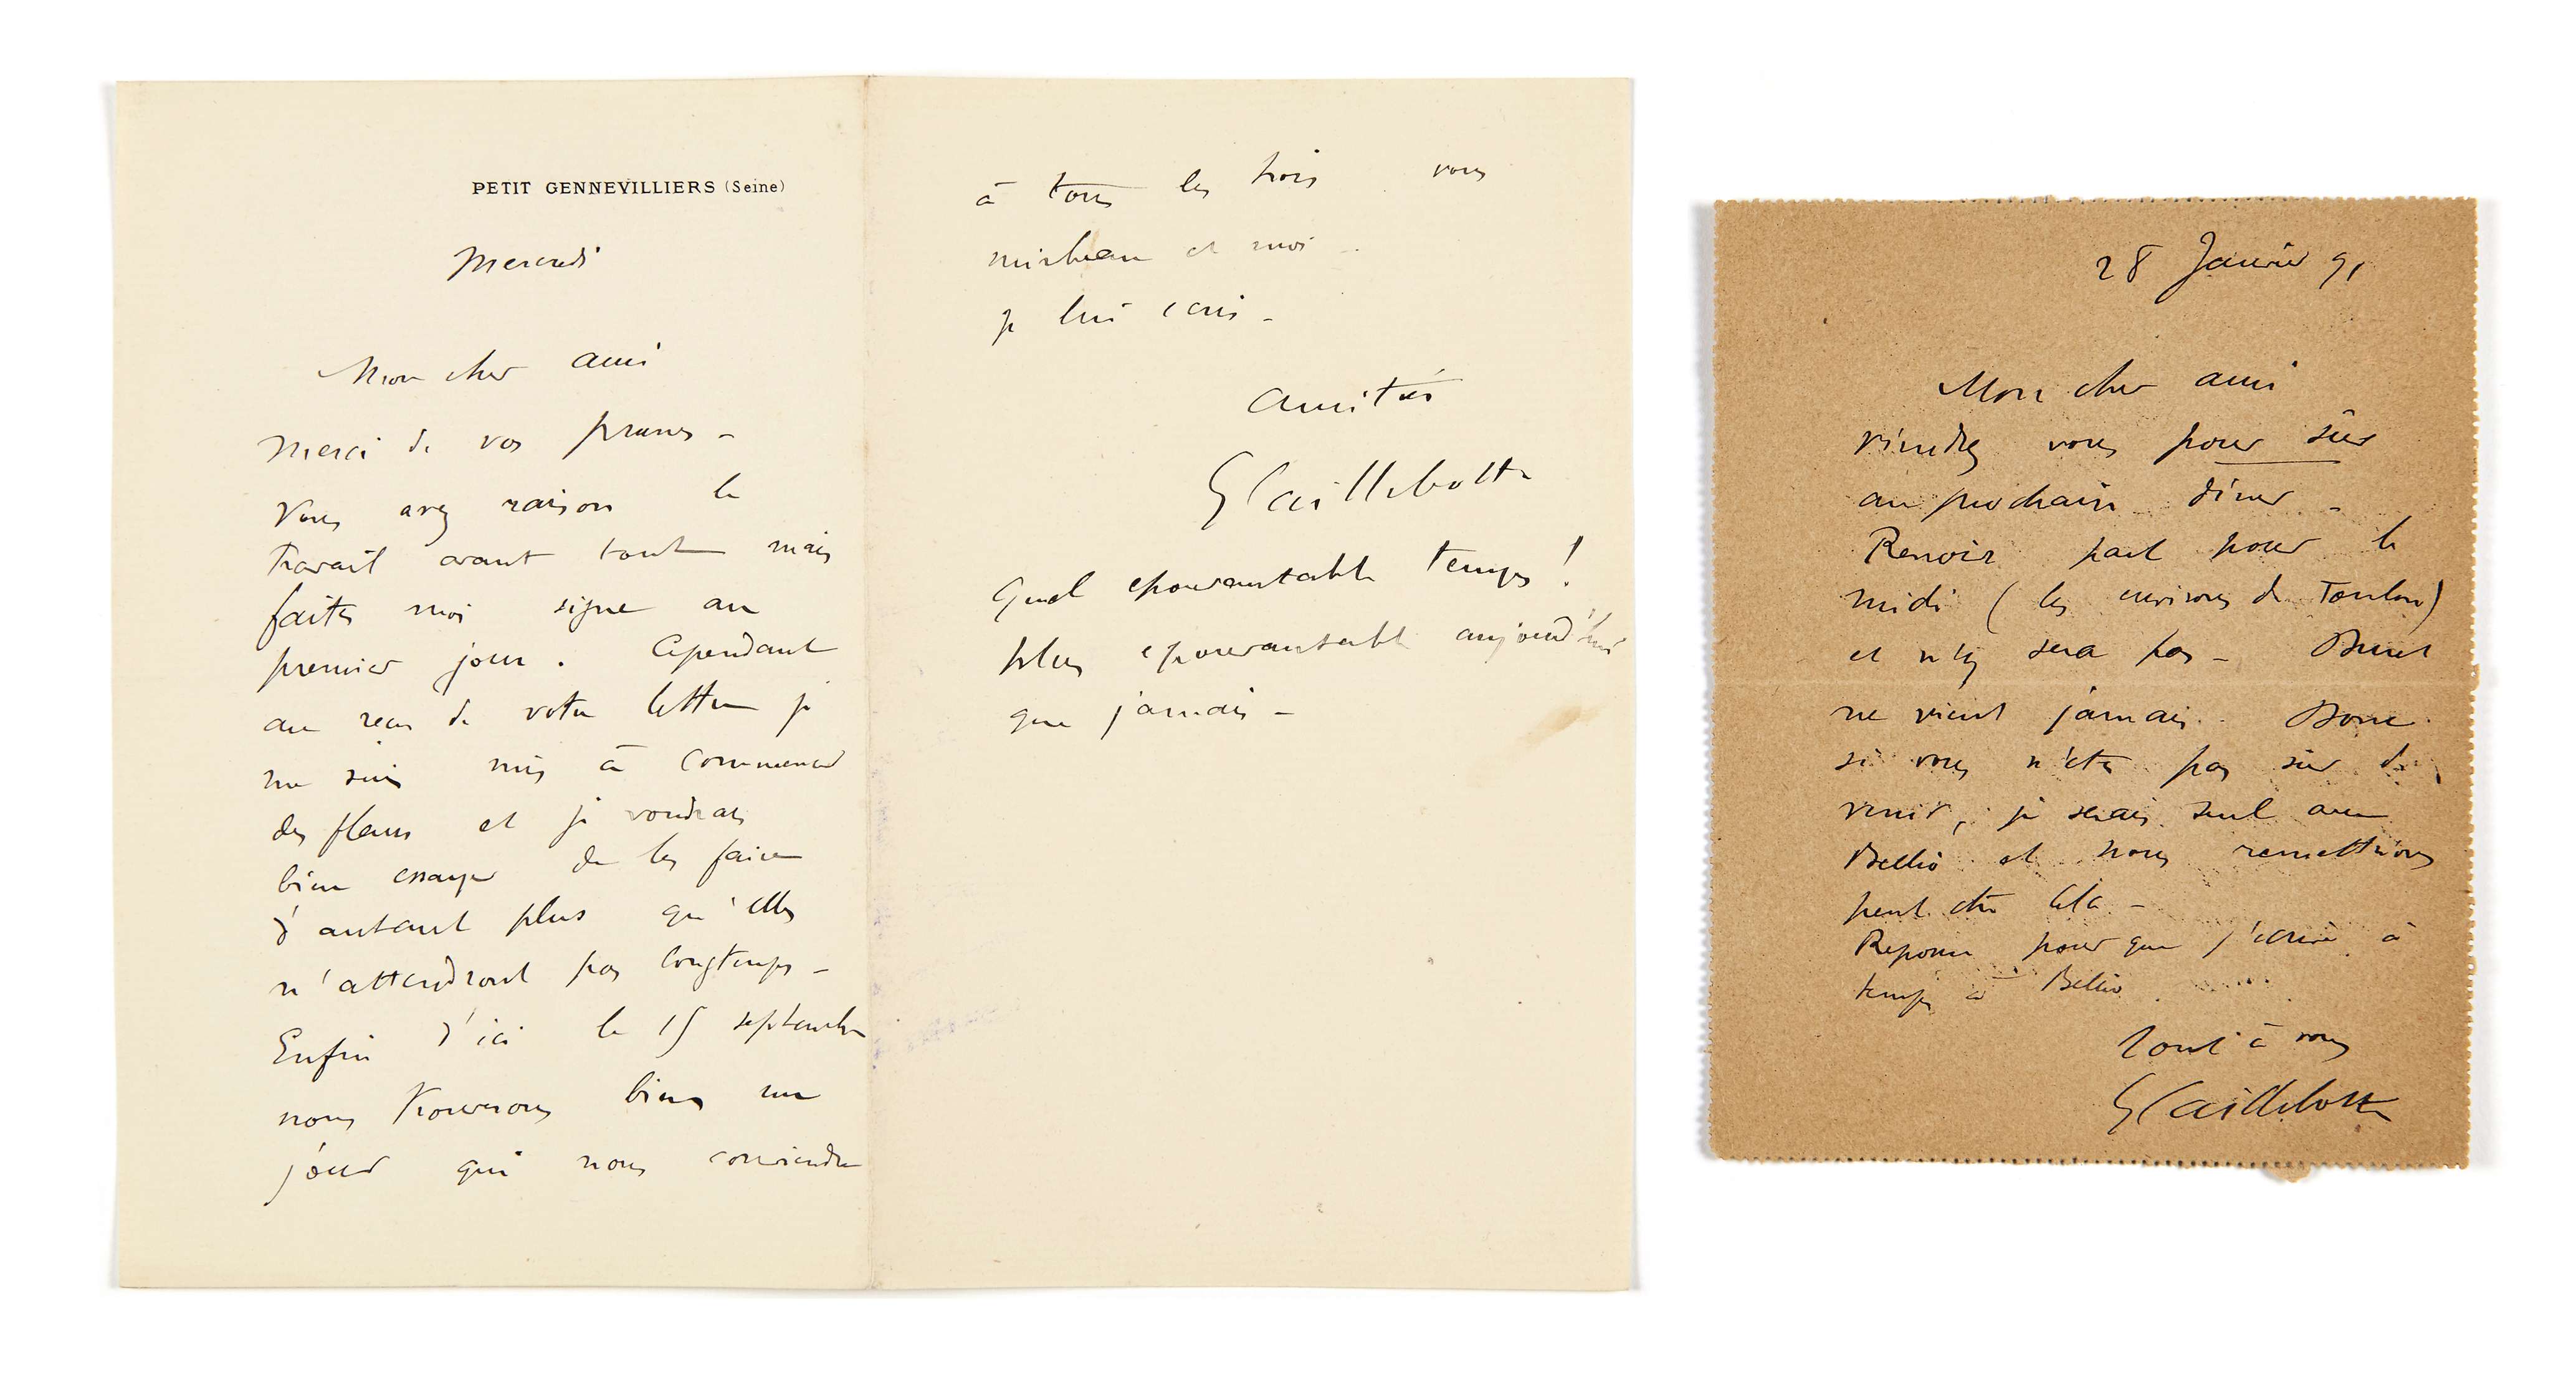 PETIT GENNEVILLIERS (Seine)
Mercredi
Mon cher ami
Merci de vos prunes -
Vous avez raison le
travail avant tout mais
faites moi signe au
premier jour. Cependant
au recu de votre lettre je
me suis mis à commencer
des fleurs et je voudrais
bien essayer de les faire
d'autant plus qu'elles
n'attendront pas longtemps -
Enfin d'ici le 15 septembre
nous trouverons bien un
jour qui nous conviendra
à tous les trois vous
mirbeau et moi -
je lui ecris -
Amitiés
G Caillebotte
Quel epouvantable temps !
plus epouvantable aujourd'hui
que jamais -
28 Janvier 91
Mon cher ami
viendrez vous pour sûr
au prochain diner -
Renoir part pour le
midi (les environs de Toulon)
et n'y sera pas - Duret
ne vient jamais. Donc
si vous n'êtes pas sûr de
venir, je serais seul avec
Bellio et nous remettrions
peut etre cela -
Reponse pour que j'ecrive à
temps à Bellio
Tout à vous
G Caillebotte